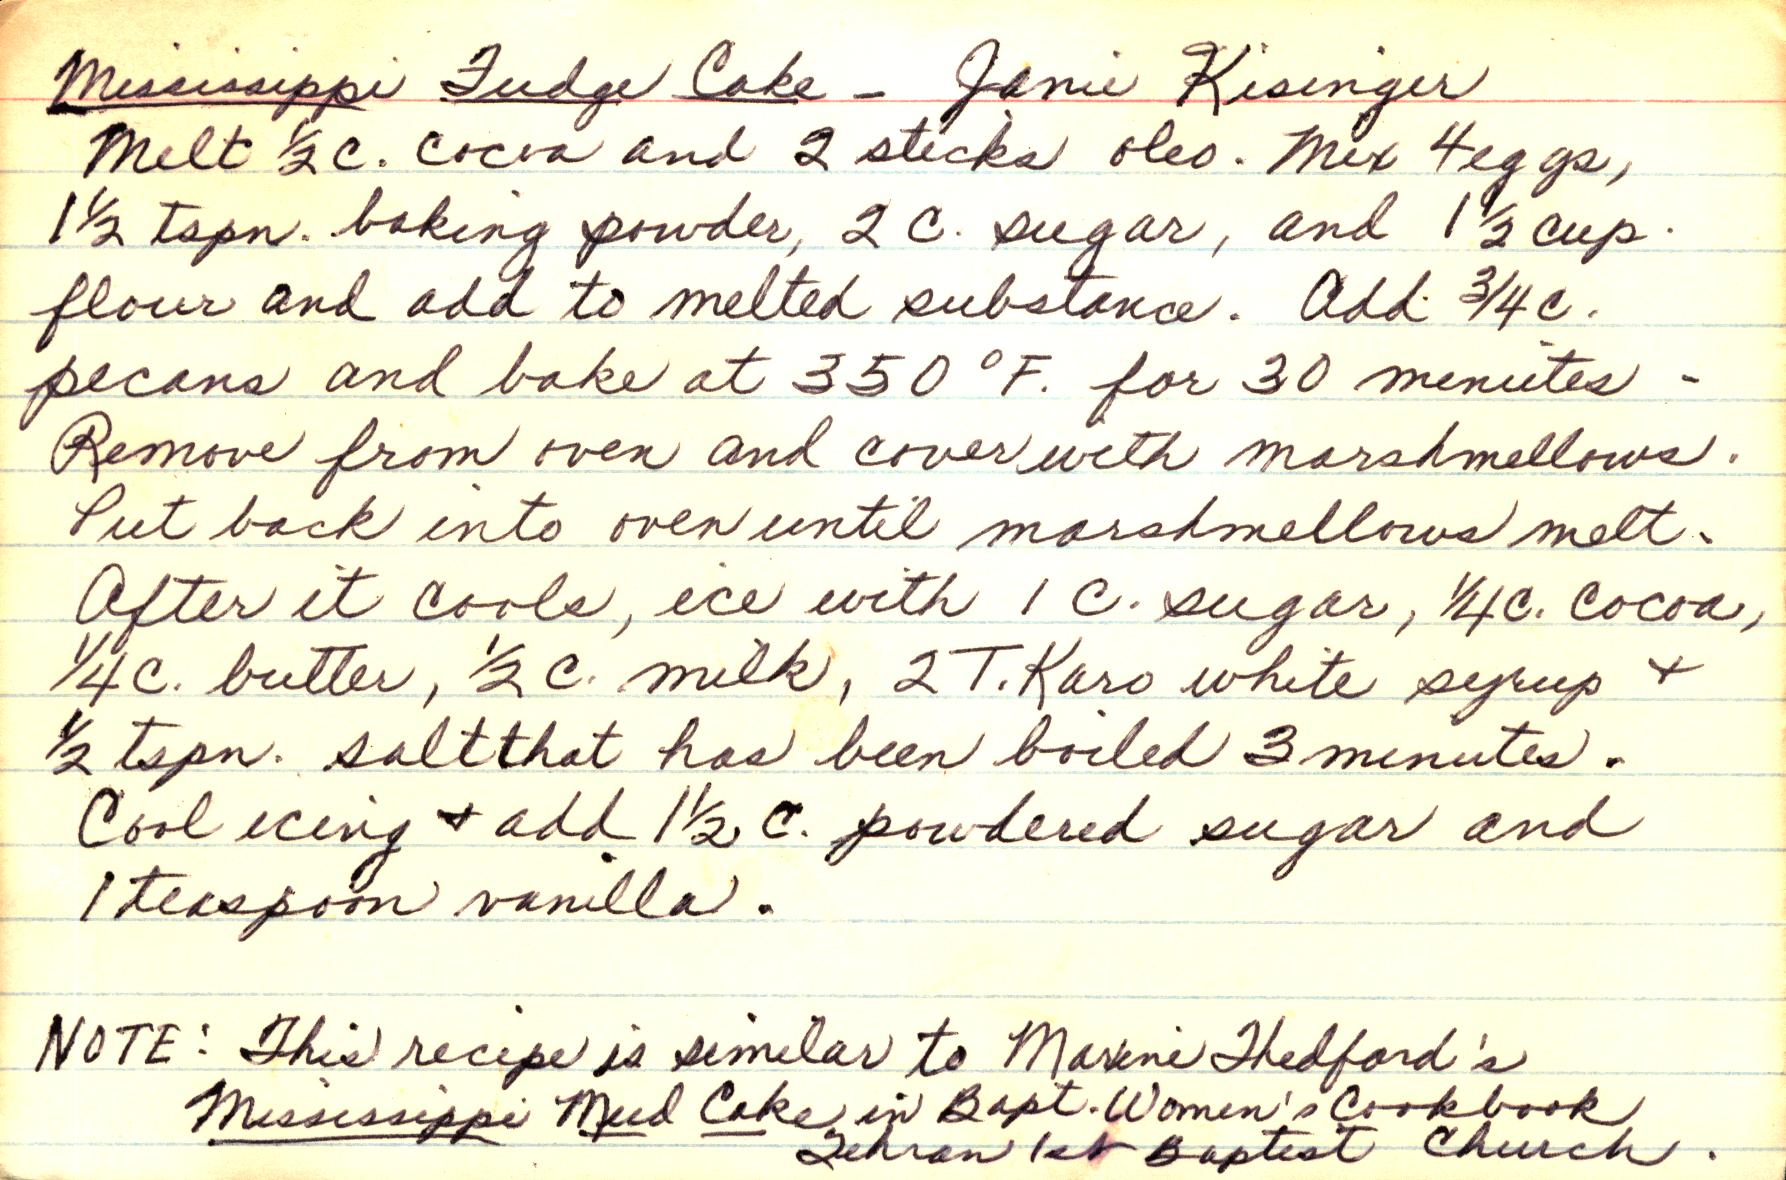 Mississippi Fudge Cake - Janie Kisinger
Melt ½ c. cocoa and 2 sticks oleo. Mix 4 eggs,
1½ tspn. baking powder, 2 c. sugar, and 1½ cup.
flour and add to melted substance. Add ¾ c.
pecans and bake at 350°F. for 30 minutes -
Remove from oven and cover with marshmellows.
Put back into oven until marshmellows melt.
After it cools, ice with 1 c. sugar, ¼ c. cocoa,
¼ c. butter, ½ c. milk, 2 T. Karo white syrup +
½ tspn. salt that has been boiled 3 minutes.
Cool icing + add 1½ c. powdered sugar and
1 teaspoon vanilla.
NOTE: This recipe is similar to Maxine Thedford's
Mississippi Mud Cake, in Bapt. Women's Cookbook
Tehran 1st Baptist Church.